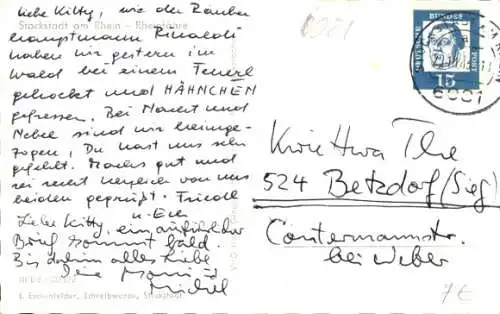 liebe Kitty, wie der Räuber
Stockstadt am Rhein - Rheinfähre
hauptmann Rinaldi
haben wir gestern im
Wald bei einem Feuerl
gehockt und HÄHNCHEN
gefressen. Bei Nacht und
Nebel sind wir heimge-
zogen, Du hast uns sehr
gefehlt. Machs gut und
sei recht herzlich von uns
beiden gegrüßt.
Liebe Kitty, ein ausführlicher
Brief kommt bald.
Bis dahin alles Liebe
Deine
L. Eschenfelder, Schreibwaren, Stockstadt
DEUTSCHE BUNDESPOST
15
6081
6081
524 Betzdorf (Sieg)
Contermannstr.
bei Weber
7€